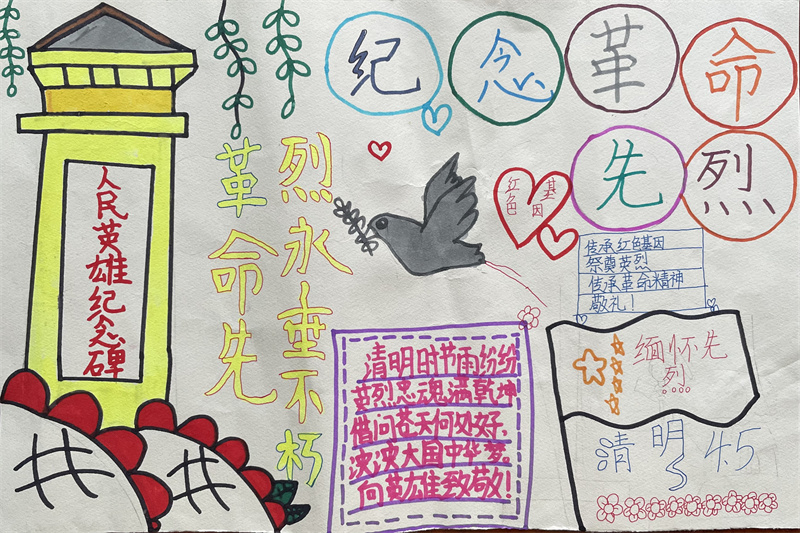 纪念革命
先烈
人民英雄纪念碑
革命先
烈永垂不朽
红色
基因
传承红色基因
祭奠英烈
传承革命精神
敬礼！
清明时节雨纷纷
英烈忠魂满乾坤
借问苍天何处好，
泱泱大国中华梦。
向英雄致敬！
缅怀先
烈
清明 4.5